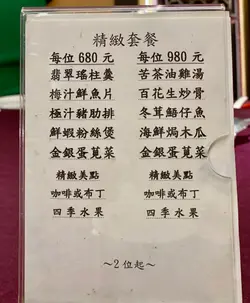 精緻套餐
每位680元 每位980元
翡翠瑤柱羹 苦茶油雞湯
梅汁鮮魚片 百花生炒骨
極汁豬肋排 冬茸鮋仔魚
鮮蝦粉絲煲 海鮮焗木瓜
金銀蛋莧菜 金銀蛋莧菜
精緻美點 精緻美點
咖啡或布丁 咖啡或布丁
四季水果 四季水果
～2位起～